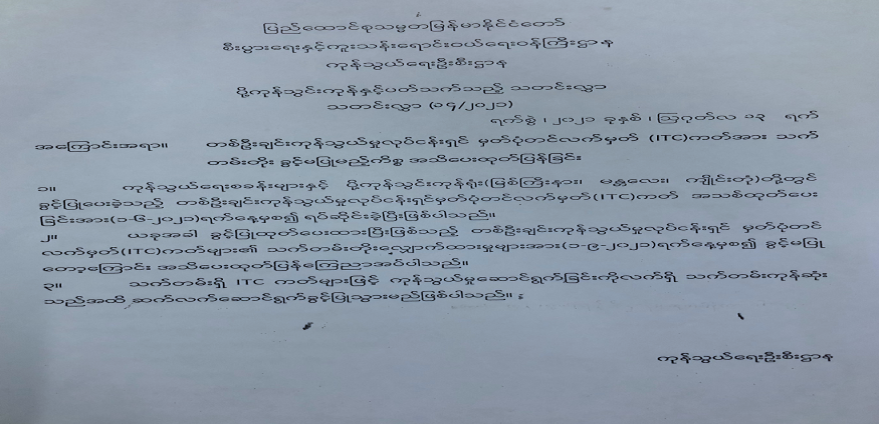 ပြည်ထောင်စုသမ္မတမြန်မာနိုင်ငံတော်
စီးပွားရေးနှင့်ကူးသန်းရောင်းဝယ်ရေးဝန်ကြီးဌာန
ကုန်သွယ်ရေးဦးစီးဌာန
ပို့ကုန်သွင်းကုန်နှင့်ပတ်သက်သည့် သတင်းလွှာ
သတင်းလွှာ (၁၄/၂၀၂၁)
ရက်စွဲ ၊ ၂၀၂၁ ခုနှစ် ၊ ဩဂုတ်လ ၁၃ ရက်
အကြောင်းအရာ။ တစ်ဦးချင်းကုန်သွယ်မှုလုပ်ငန်းရှင် မှတ်ပုံတင်လက်မှတ် (ITC)ကတ်အား သက်
တမ်းတိုး ခွင့်မပြုမည့်ကိစ္စ အသိပေးထုတ်ပြန်ခြင်း
၁။ ကုန်သွယ်ရေးစခန်းများနှင့် ပို့ကုန်သွင်းကုန်ရုံး(မြစ်ကြီးနား၊ မန္တလေး၊ ကျိုင်းတုံ)တို့တွင်
ခွင့်ပြုပေးခဲ့သည့် တစ်ဦးချင်းကုန်သွယ်မှုလုပ်ငန်းရှင်မှတ်ပုံတင်လက်မှတ်(ITC)ကတ် အသစ်ထုတ်ပေး
ခြင်းအား(၁-၆-၂၀၂၁)ရက်နေ့မှစ၍ ရပ်ဆိုင်းခဲ့ပြီးဖြစ်ပါသည်။
၂။ ယခုအခါ ခွင့်ပြုထုတ်ပေးထားပြီးဖြစ်သည့် တစ်ဦးချင်းကုန်သွယ်မှုလုပ်ငန်းရှင် မှတ်ပုံတင်
လက်မှတ်(ITC)ကတ်များ၏ သက်တမ်းတိုးလျှောက်ထားမှုများအား(၁-၉-၂၀၂၁)ရက်နေ့မှစ၍ ခွင့်မပြု
တော့ကြောင်း အသိပေးထုတ်ပြန်ကြေညာအပ်ပါသည်။
၃။ သက်တမ်းရှိ ITC ကတ်များဖြင့် ကုန်သွယ်မှုဆောင်ရွက်ခြင်းကိုလက်ရှိ သက်တမ်းကုန်ဆုံး
သည်အထိ ဆက်လက်ဆောင်ရွက်ခွင့်ပြုသွားမည်ဖြစ်ပါသည်။
ကုန်သွယ်ရေးဦးစီးဌာန